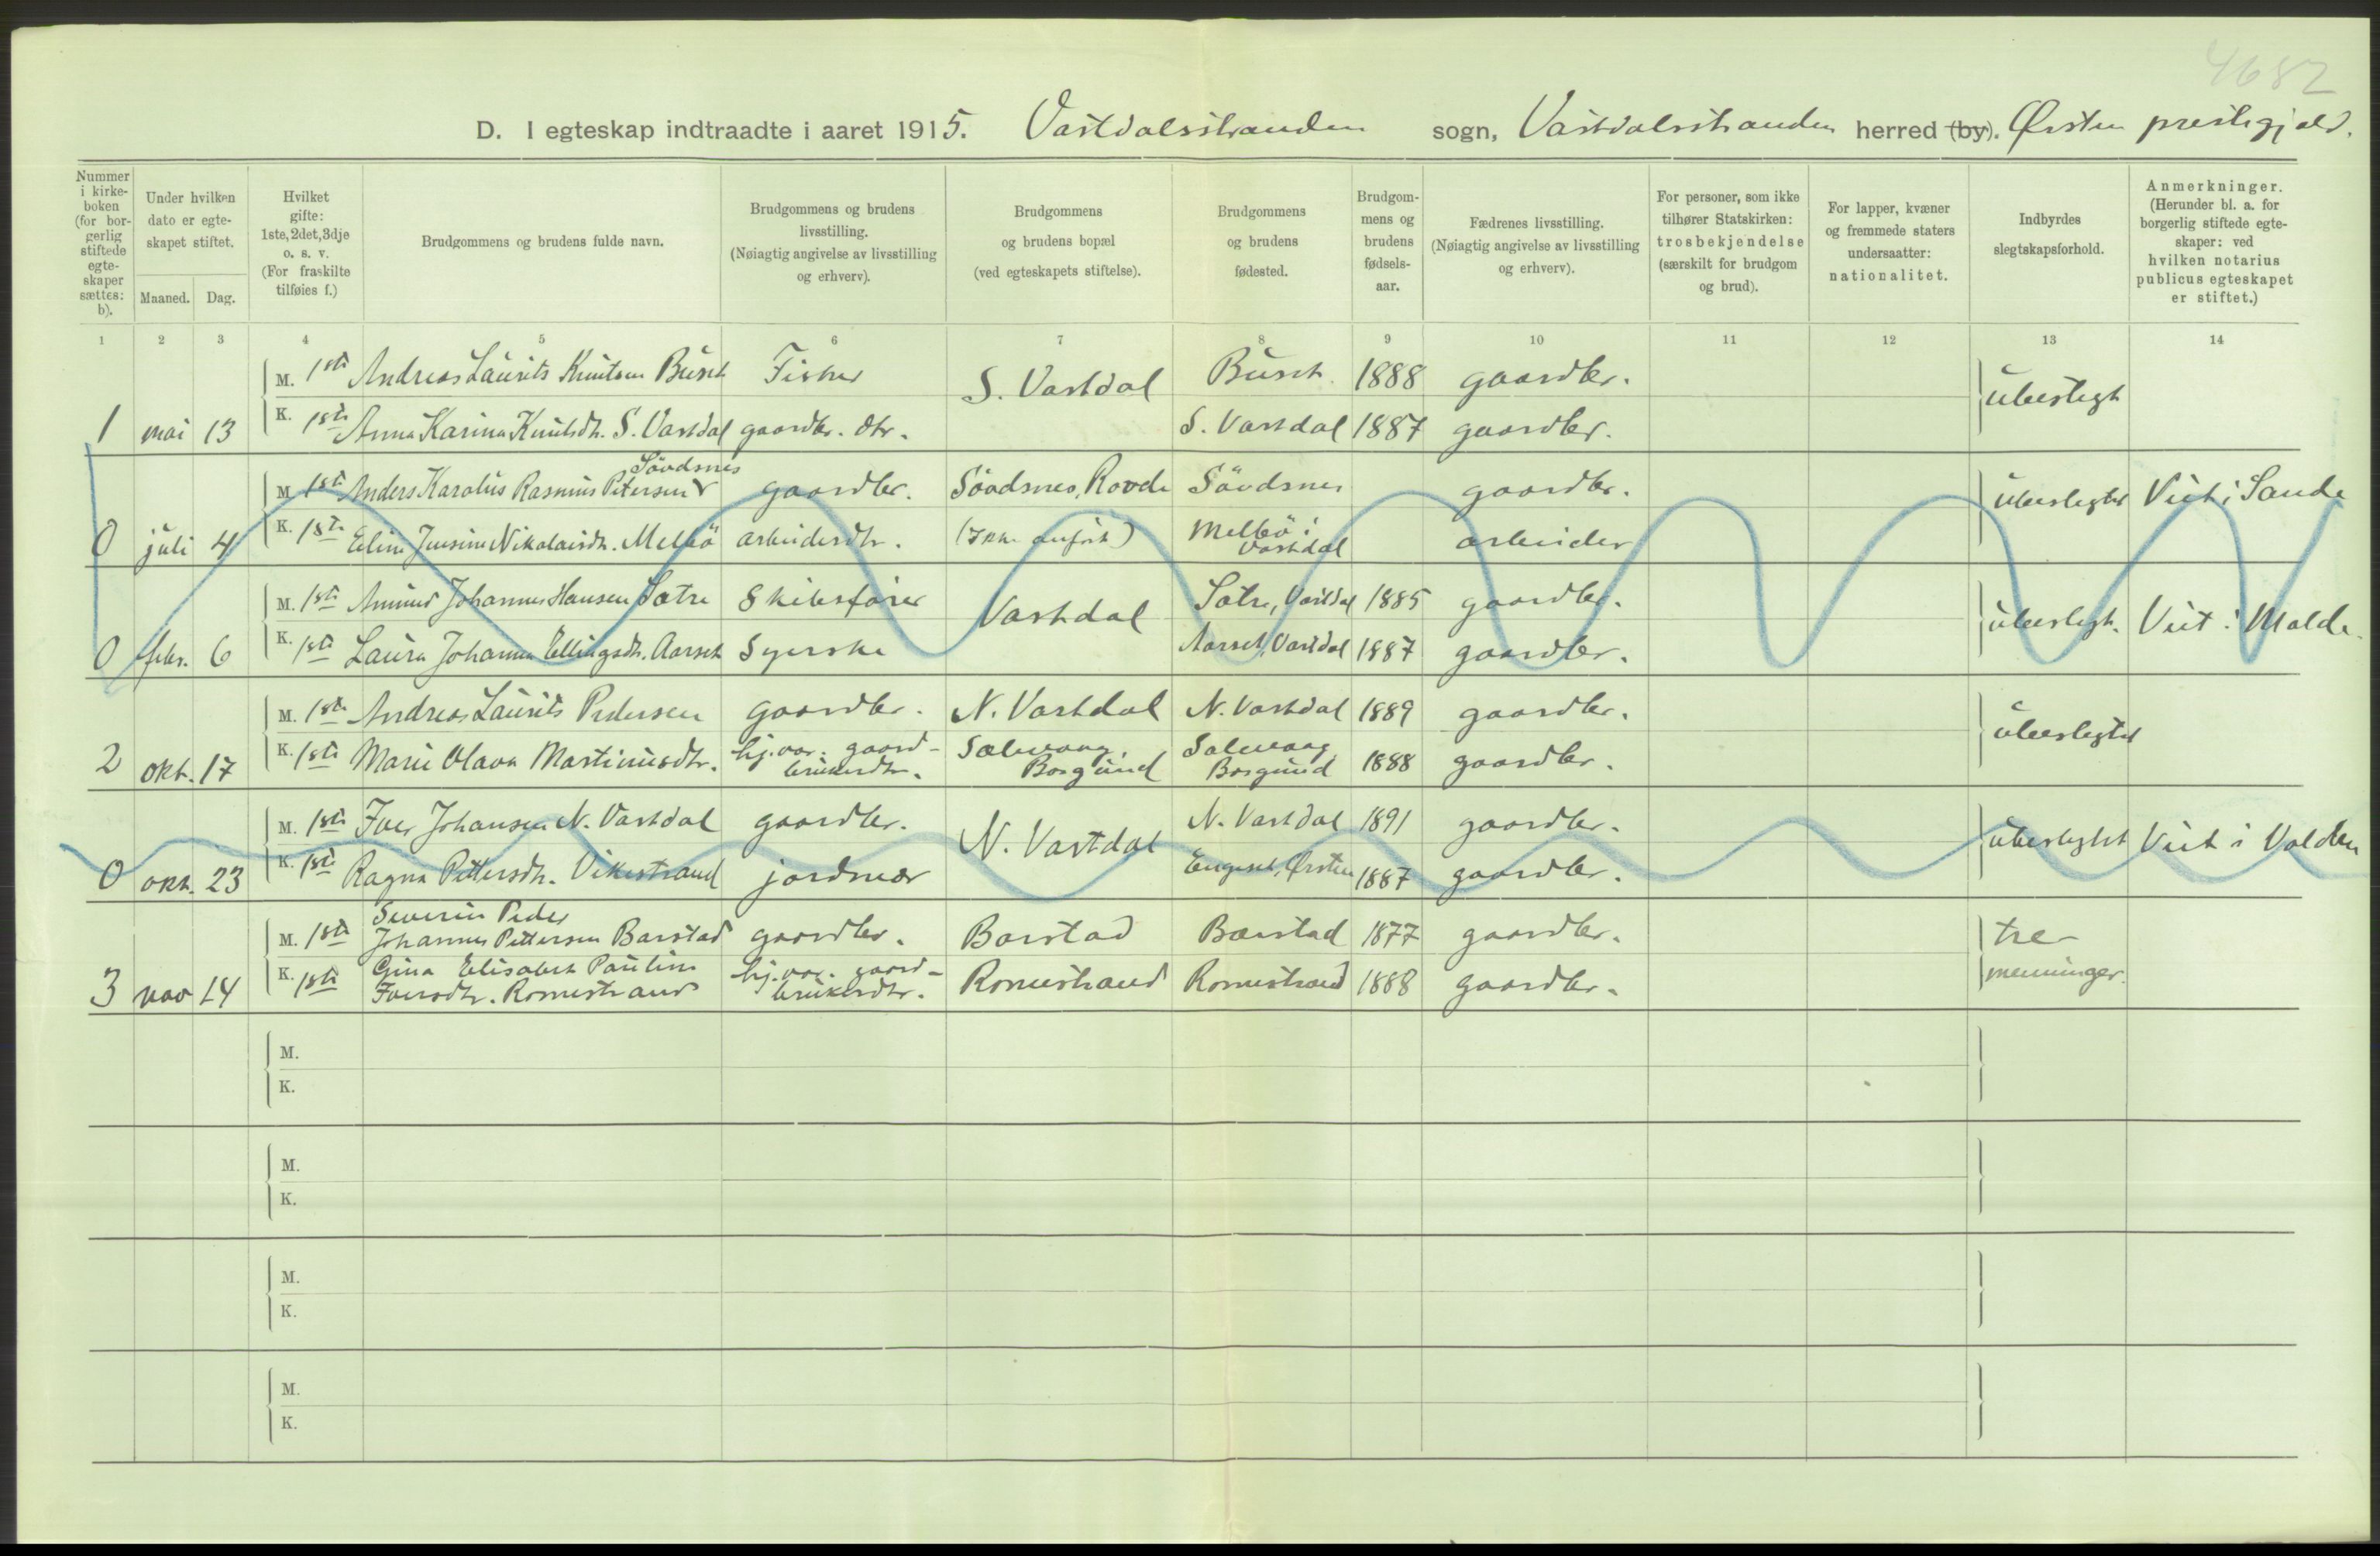 4682
D. I egteskap indtraadte i aaret 1915. Vartdalsstranden sogn, Vartdalsstranden herred (by). Ørsten prestegjeld.
Nummer i kirkeboken (for borgerlig stiftede egteskaper sættes: b).
Under hvilken dato er egteskapet stiftet.
Maaned. Dag.
Hvilket gifte: 1ste, 2det, 3dje o. s. v. (For fraskilte tilføies f.)
Brudgommens og brudens fulde navn.
Brudgommens og brudens livsstilling. (Nøiagtig angivelse av livsstilling og erhverv).
Brudgommens og brudens bopæl (ved egteskapets stiftelse).
Brudgommens og brudens fødested.
Brudgommens og brudens fødselsaar.
Fædrenes livsstilling. (Nøiagtig angivelse av livsstilling og erhverv).
For personer, som ikke tilhører Statskirken: trosbekjendelse (særskilt for brudgom og brud).
For lapper, kvæner og fremmede staters undersaatter: nationalitet.
Indbyrdes slegtskapsforhold.
Anmerkninger. (Herunder bl. a. for borgerlig stiftede egteskaper: ved hvilken notarius publicus egteskapet er stiftet.)
1 2 3 4 5 6 7 8 9 10 11 12 13 14
M. 1ste Andreas Laurits Knutsen Buset Fisker S. Vartdal Buset 1888 gaardbr. ubeslegt
1 mai 13 K. 1ste Anna Karina Knutsdtr. S. Vartdal gaardbr. dtr. S. Vartdal 1887 gaardbr.
M. 1ste Anders Karolus Rasmus Petersen Sövdsnes gaardbr. Sövdsnes, Rovde Sövdsnes gaardbr. ubeslegtet Viet i Sande
0 juli 4 K. 1ste Eline Jensine Nikolaisdtr. Melbö arbeiderdtr. (Ikke anfört) Melbö i Vartdal arbeider
M. 1ste Amund Johannes Hansen Sætre Skibsfører Vartdal Sætre, Vartdal 1885 gaardbr. ubeslegt. Viet i Molde.
0 febr. 6 K. 1ste Laura Johanna Ellingsdtr. Aarset Syerske Aarset, Vartdal 1887 gaardbr.
M. 1ste Andreas Laurits Pedersen gaardbr. N. Vartdal N. Vartdal 1889 gaardbr. ubeslegtet
2 okt. 17 K. 1ste Marie Olava Martinusdtr. hj. vær. gaardbrukerdtr. Solevaag, Borgund Solevaag, Borgund 1888 gaardbr.
M. 1ste Iver Johansen N. Vartdal gaardbr. N. Vartdal N. Vartdal 1891 gaardbr. ubeslegtet Viet i Volden
0 okt. 23 K. 1ste Ragna Pettersdtr. Vikestrand jordmor Engeset, Ørsten 1887 gaardbr.
M. 1ste Severin Peder Johannes Pettersen Barstad gaardbr. Barstad Barstad 1877 gaardbr. tre
3 nov 14 K. 1ste Gina Elisabet Pauline Iversdtr. Romestrand hj. vær. gaardbrukerdtr. Romestrand Romestrand 1888 gaardbr. menninger.
M.
K.
M.
K.
M.
K.
M.
K.